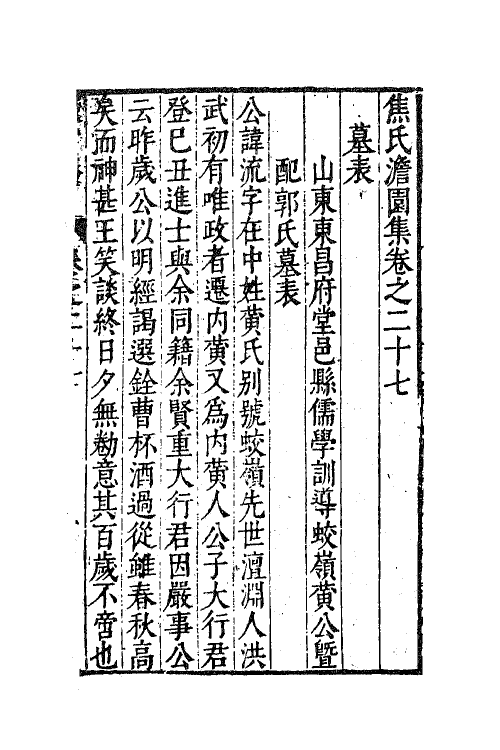 焦氏澹園集卷之二十七
墓表
山東東昌府堂邑縣儒學訓導蛟嶺黄公暨
配郭氏墓表
公諱流字在中姓黄氏别號蛟嶺先世澶淵人洪
武初有唯政者遷内黄又爲内黄人公子大行君
登巳丑進士與余同籍余賢重大行君因嚴事公
云昨歲公以明經謁選銓曹杯酒過從雖春秋高
矣而神甚王笑談終日夕無勌意其百歲不啻也